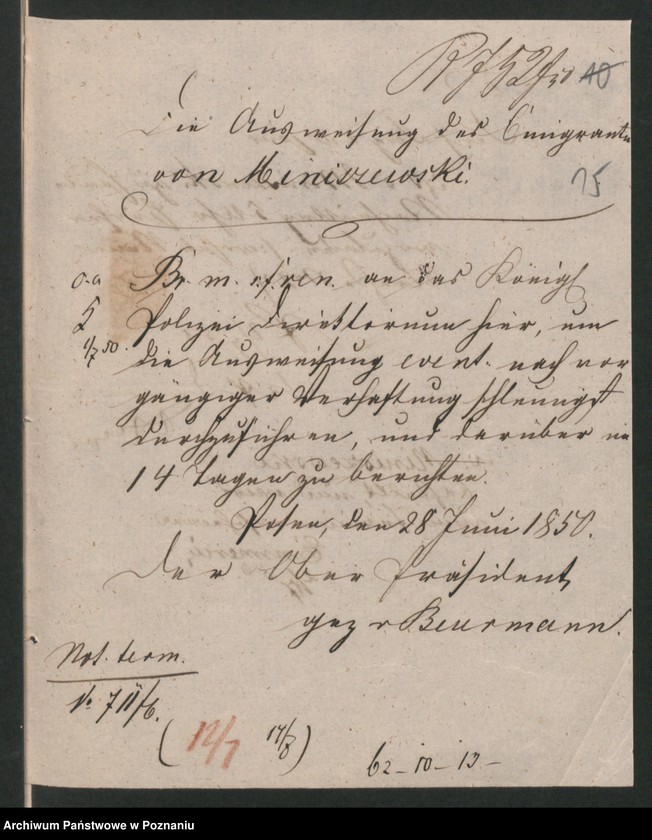 40
Die Ausweisung des Emigranten
von Miniszewski.
75
Br. m. an das Königl
Polizei Direktorium hier, um
die Ausweisung event. nach vor
gängiger Verhaftung schleunigst
durchzuführen, und darüber in
14 Tagen zu berichten.
Posen, den 28 Juni 1850.
Der Ober Präsident
gez v Beurmann.
Not. term.
No 711/6.
(12/7 14/8)
62-10-13-
Archiwum Państwowe w Poznaniu